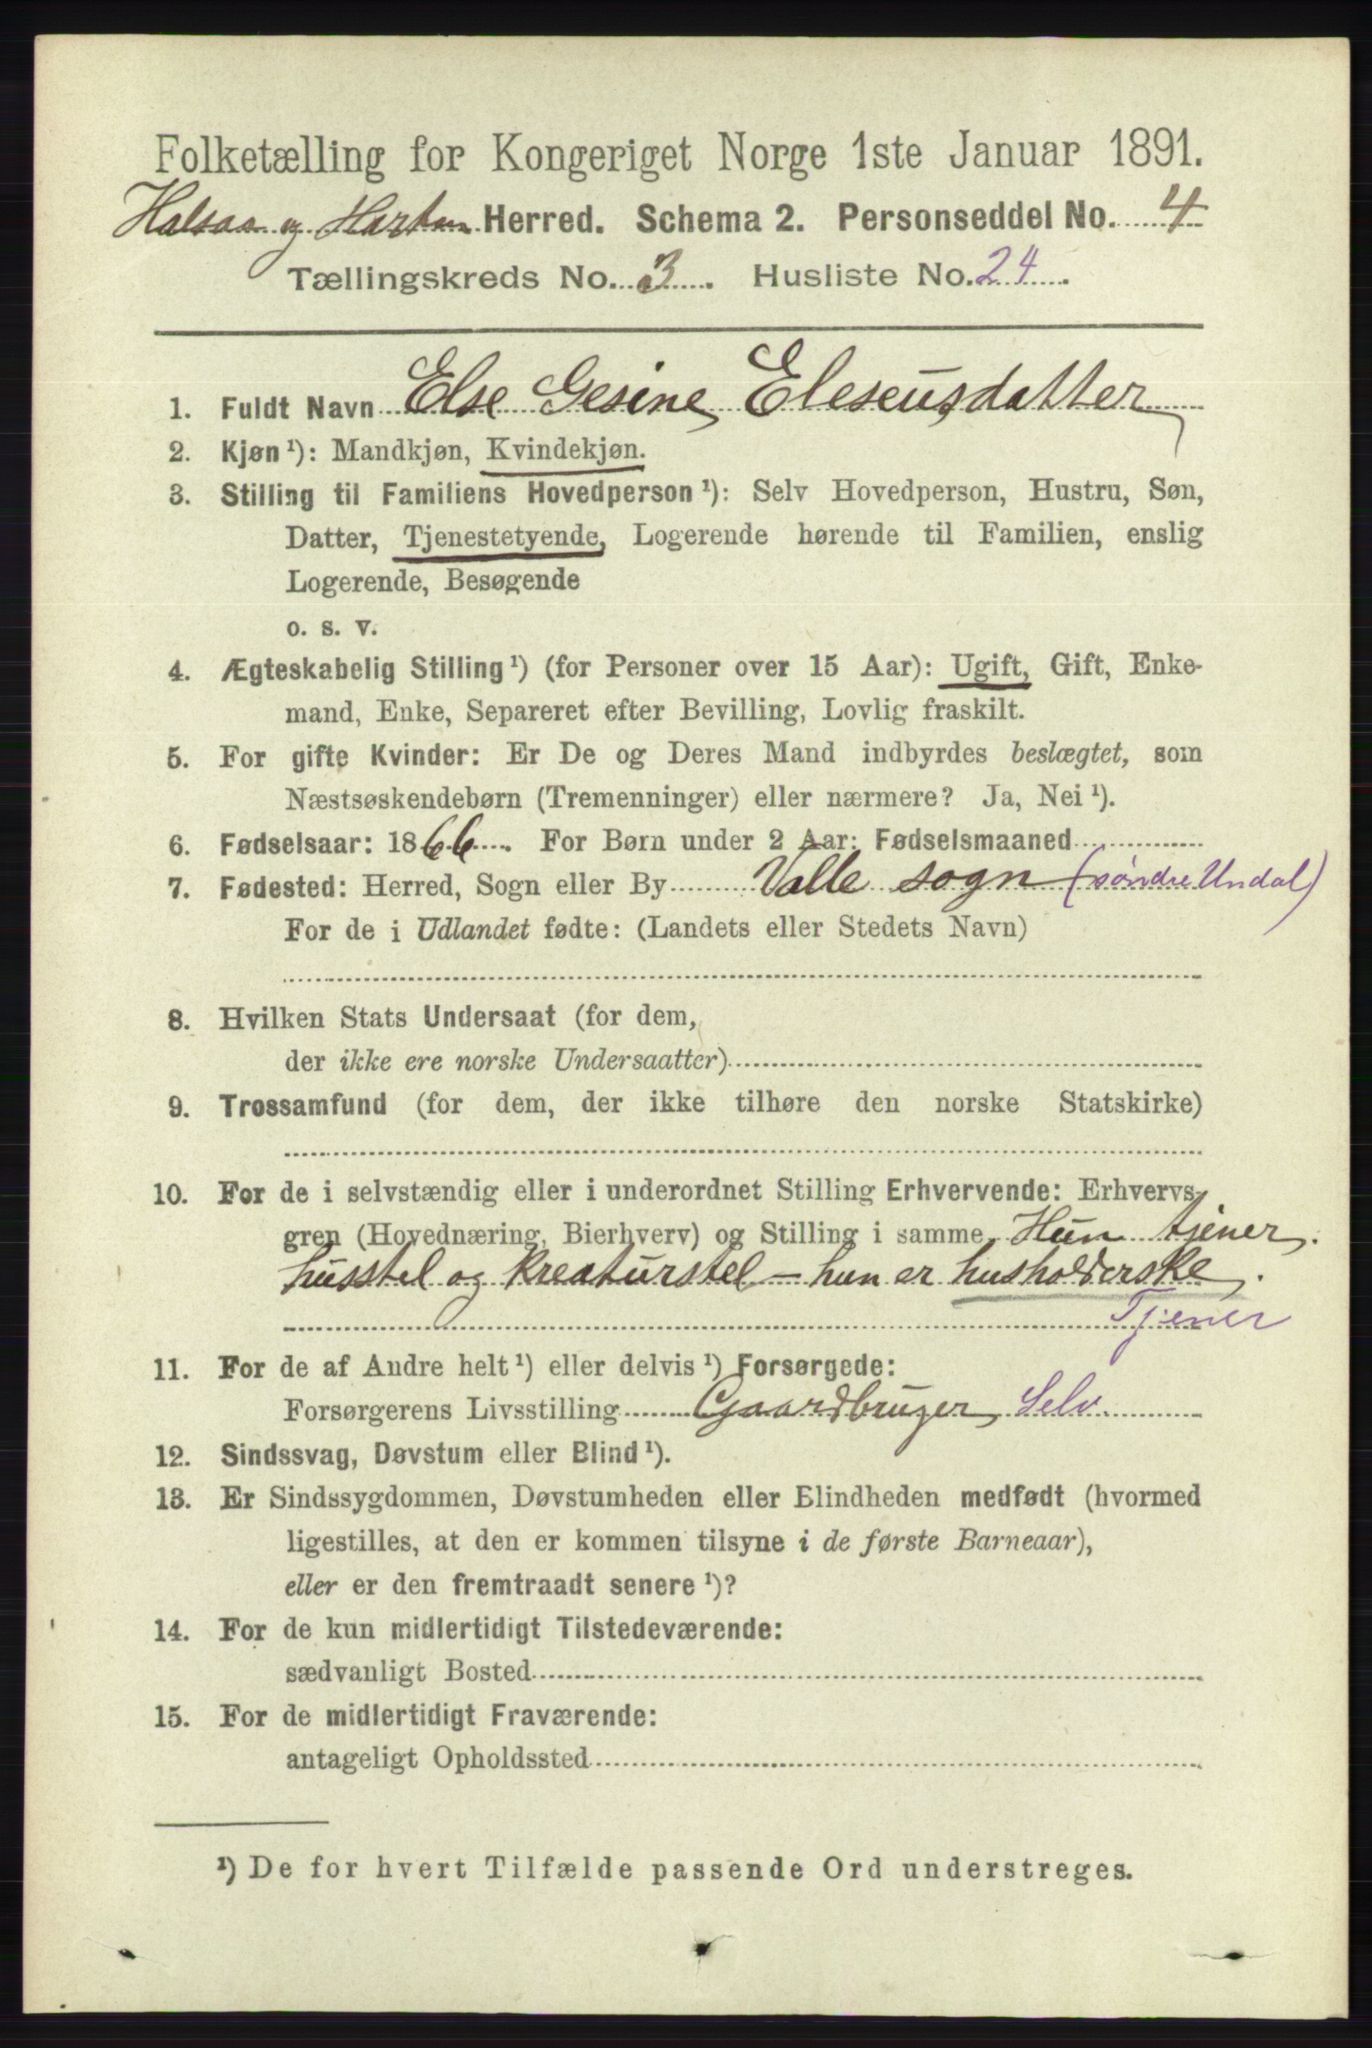 Folketælling for Kongeriget Norge 1ste Januar 1891.
Halsaa og Hartm Herred. Schema 2. Personseddel No. 4
Tællingskreds No. 3. Husliste No. 24.
1. Fuldt Navn Else Gesine Eleseusdatter
2. Kjøn ¹): Mandkjøn, Kvindekjøn.
3. Stilling til Familiens Hovedperson ¹): Selv Hovedperson, Hustru, Søn,
Datter, Tjenestetyende, Logerende hørende til Familien, enslig
Logerende, Besøgende
o. s. v.
4. Ægteskabelig Stilling ¹) (for Personer over 15 Aar): Ugift, Gift, Enke-
mand, Enke, Separeret efter Bevilling, Lovlig fraskilt.
5. For gifte Kvinder: Er De og Deres Mand indbyrdes beslægtet, som
Næstsøskendebørn (Tremenninger) eller nærmere? Ja, Nei ¹).
6. Fødselsaar: 1866. For Børn under 2 Aar: Fødselsmaaned
7. Fødested: Herred, Sogn eller By Valle sogn (søndre Undal)
For de i Udlandet fødte: (Landets eller Stedets Navn)
8. Hvilken Stats Undersaat (for dem,
der ikke ere norske Undersaatter)
9. Trossamfund (for dem, der ikke tilhøre den norske Statskirke)
10. For de i selvstændig eller i underordnet Stilling Erhvervende: Erhvervs-
gren (Hovednæring, Bierhverv) og Stilling i samme Hun tjener.
husstel og kreaturstel - hun er husholderske.
Tjener
11. For de af Andre helt ¹) eller delvis ¹) Forsørgede:
Forsørgerens Livsstilling Gaardbruger Selv.
12. Sindssvag, Døvstum eller Blind ¹).
13. Er Sindssygdommen, Døvstumheden eller Blindheden medfødt (hvormed
ligestilles, at den er kommen tilsyne i de første Barneaar),
eller er den fremtraadt senere ¹)?
14. For de kun midlertidigt Tilstedeværende:
sædvanligt Bosted
15. For de midlertidigt Fraværende:
antageligt Opholdssted
¹) De for hvert Tilfælde passende Ord understreges.